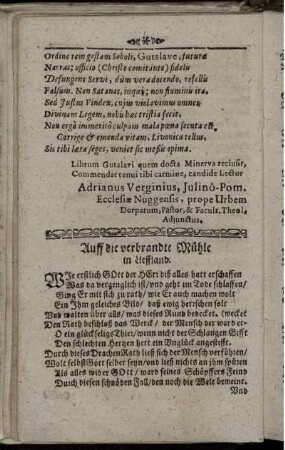 Ordine rem gestam Sobalt, Gutslave, futuræ
Narras; officio (Christo comitante) fideli
Defungens Servi, dùm vera docendo, refellis
Falsum. Non Satanas, inquis; non fluminis ira,
Sed Justus Vindex, cujus violavimus omnes
Divinam Legem, nobis hac tristia fecit,
Non ergò immeritò culpam mala pœna secuta est.
Corrige & emenda vitam, Livonica tellus,
Sis tibi læta seges, veniet sic messis opima.
Librum Gutslavi quem docta Minerva reclusit,
Commendat tenui tibi carmine, candide Lector
Adrianus Verginius, Julinô-Pom.
Ecclesiæ Nuggensis, prope Urbem
Dorpatum, Pastor, & Facult. Theol.
Adjunctus.
Auff die verbrandte Mühle
in Lieffland.
WJe erstlich GOtt der HErr diß alles hatt erschaffen
Was da vergenglich ist/ und geht im Tode schlaffen/
Ging Er mit sich zu rath/ wie Er auch machen wolt
Ein Jhm geleiches Bild/ daß ewig herrschen solt
Und walten über alls/ was dieses Rund bedecket. (wecket
Den Rath beschloß das Werck/ der Mensch der ward er-
O ein glückselig Thier/ wenn nicht der Schlangen Gifft
Den schlechten Hertzen hett ein Unglück angestifft.
Durch dieses Drachen Rath ließ sich der Mensch verführen/
Wolt selbst Gott selber seyn/ und ließ nichts an jhm spüren
Als alles wider GOtt/ ward seines Schöpffers Feind
Durch diesen schnöden Fall/ den noch die Welt beweint.
Und